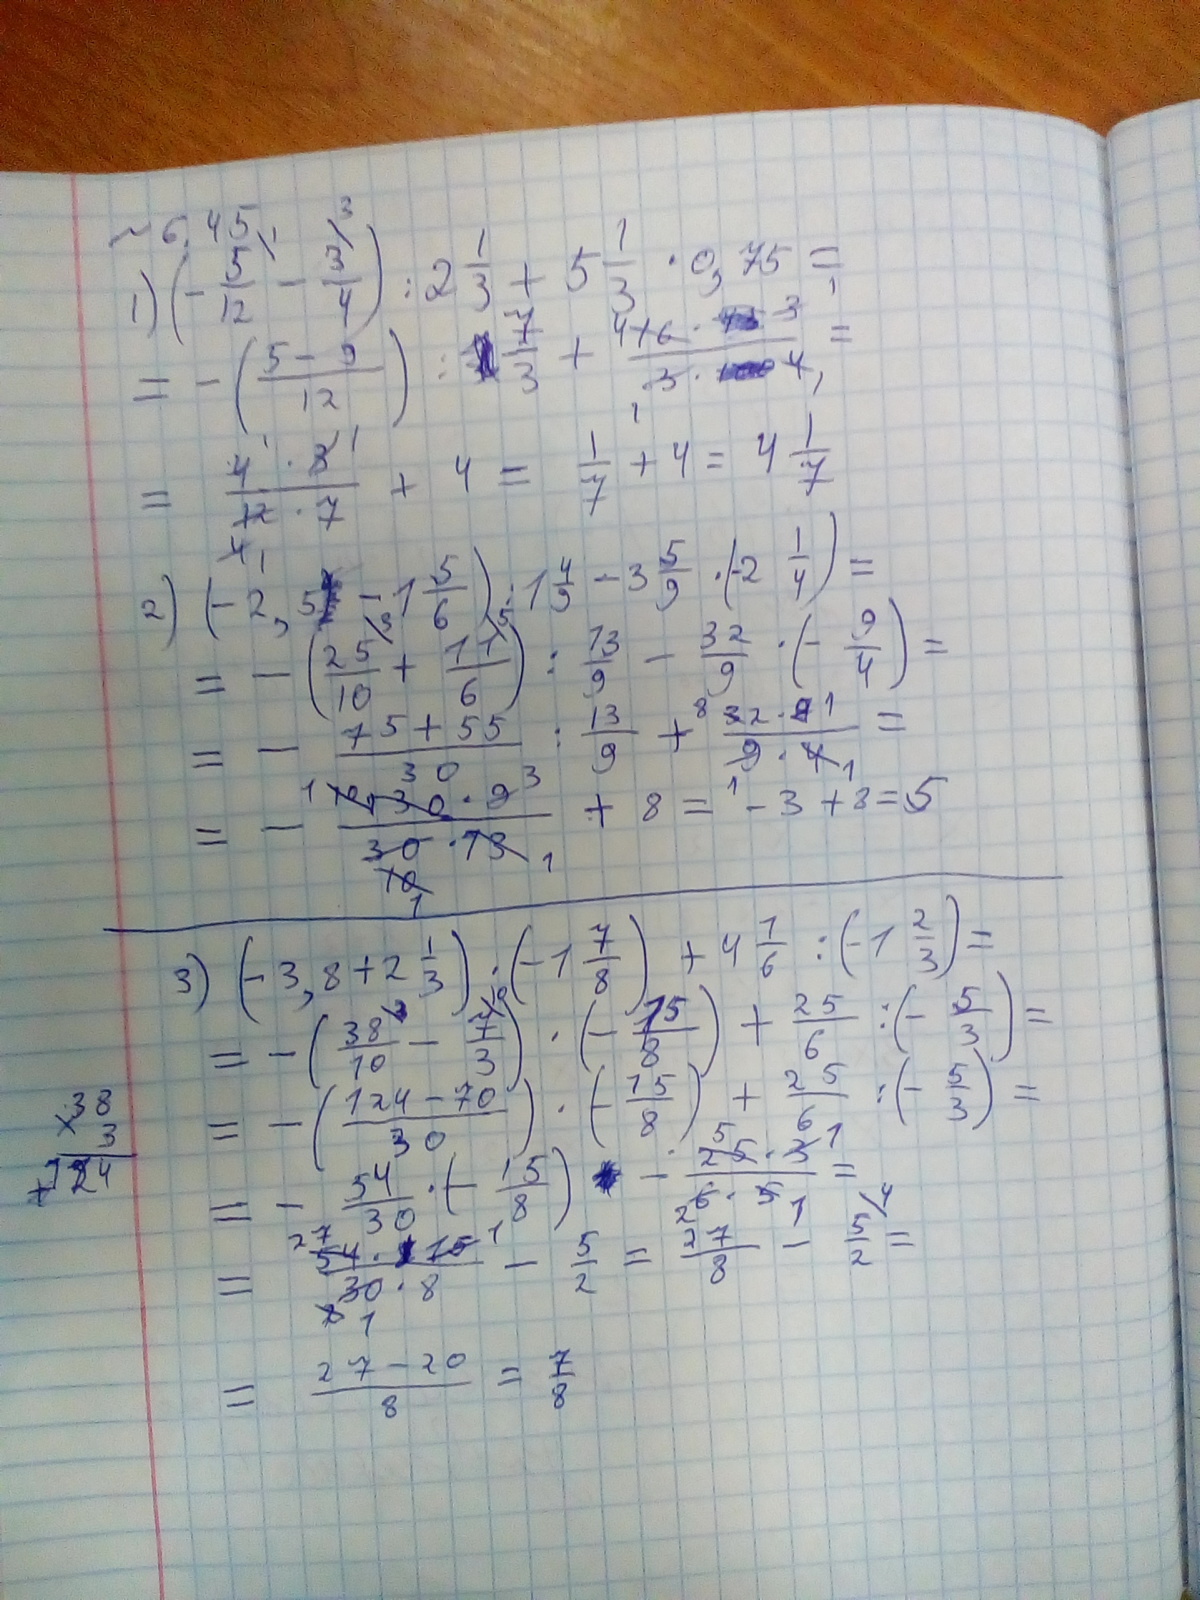 ~ 6,45
1) (- 5/12 - 3/4) : 2 1/3 + 5 1/3 · 0,75 =
= - (5 - 9 / 12) : 7/3 + 16 · 3 / 3 · 4 =
= 4 · 3 / 12 · 7 + 4 = 1/7 + 4 = 4 1/7
2) (- 2,5 - 1 5/6) : 1 4/9 - 3 5/9 · (-2 1/4) =
= - (25/10 + 11/6) : 13/9 - 32/9 · (- 9/4) =
= - 75 + 55 / 30 : 13/9 + 32 · 9 / 9 · 4 =
= - 130 · 9 / 30 · 13 + 8 = - 3 + 8 = 5
3) (- 3,8 + 2 1/3) · (- 1 7/8) + 4 1/6 : (- 1 2/3) =
= - (38/10 - 7/3) · (- 15/8) + 25/6 : (- 5/3) =
= - (124 - 70 / 30) · (- 15/8) + 25/6 : (- 5/3) =
× 38
3
124
= - 54/30 · (- 15/8) - 25 · 3 / 6 · 5 =
= 54 · 15 / 30 · 8 - 5/2 = 27/8 - 5/2 =
= 27 - 20 / 8 = 7/8